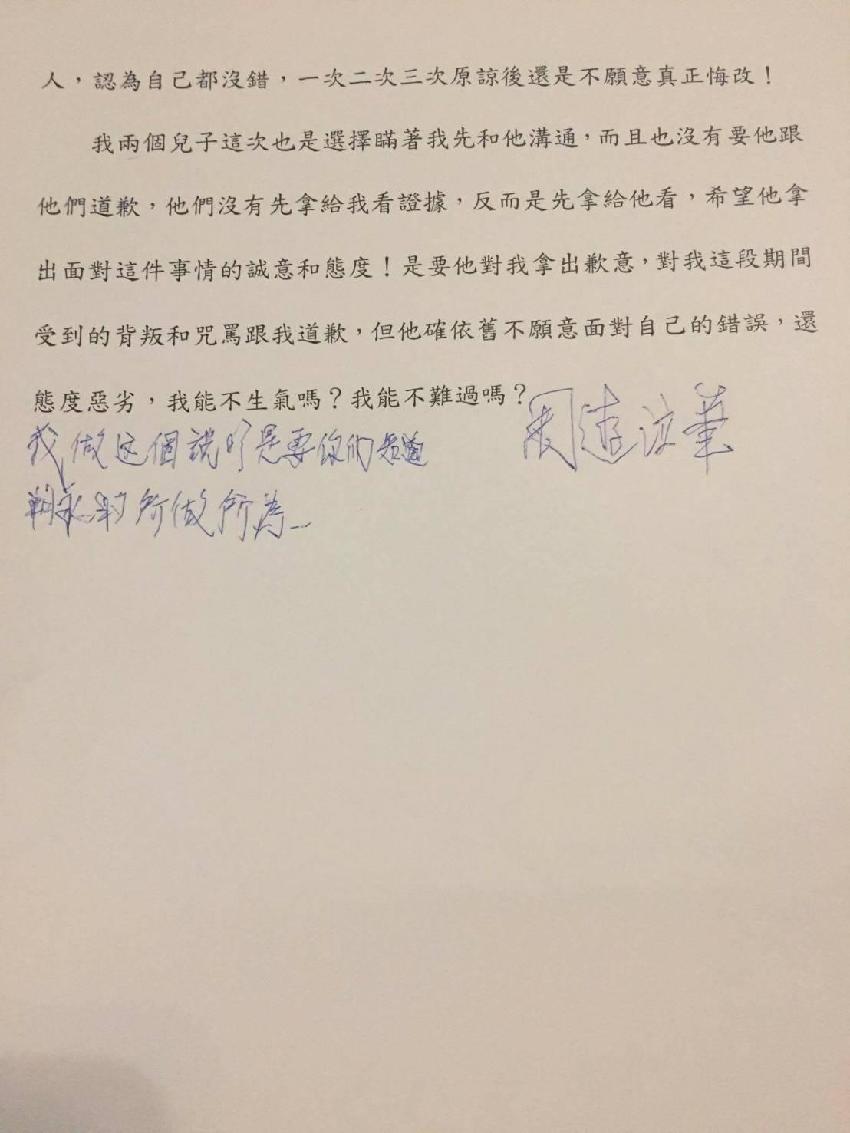 人，認為自己都沒錯，一次二次三次原諒後還是不願意真正悔改！
我兩個兒子這次也是選擇瞞著我先和他溝通，而且也沒有要他跟
他們道歉，他們沒有先拿給我看證據，反而是先拿給他看，希望他拿
出面對這件事情的誠意和態度！是要他對我拿出歉意，對我這段期間
受到的背叛和咒罵跟我道歉，但他確依舊不願意面對自己的錯誤，還
態度惡劣，我能不生氣嗎？我能不難過嗎？
我做这個說明是要你们知道
所做所為